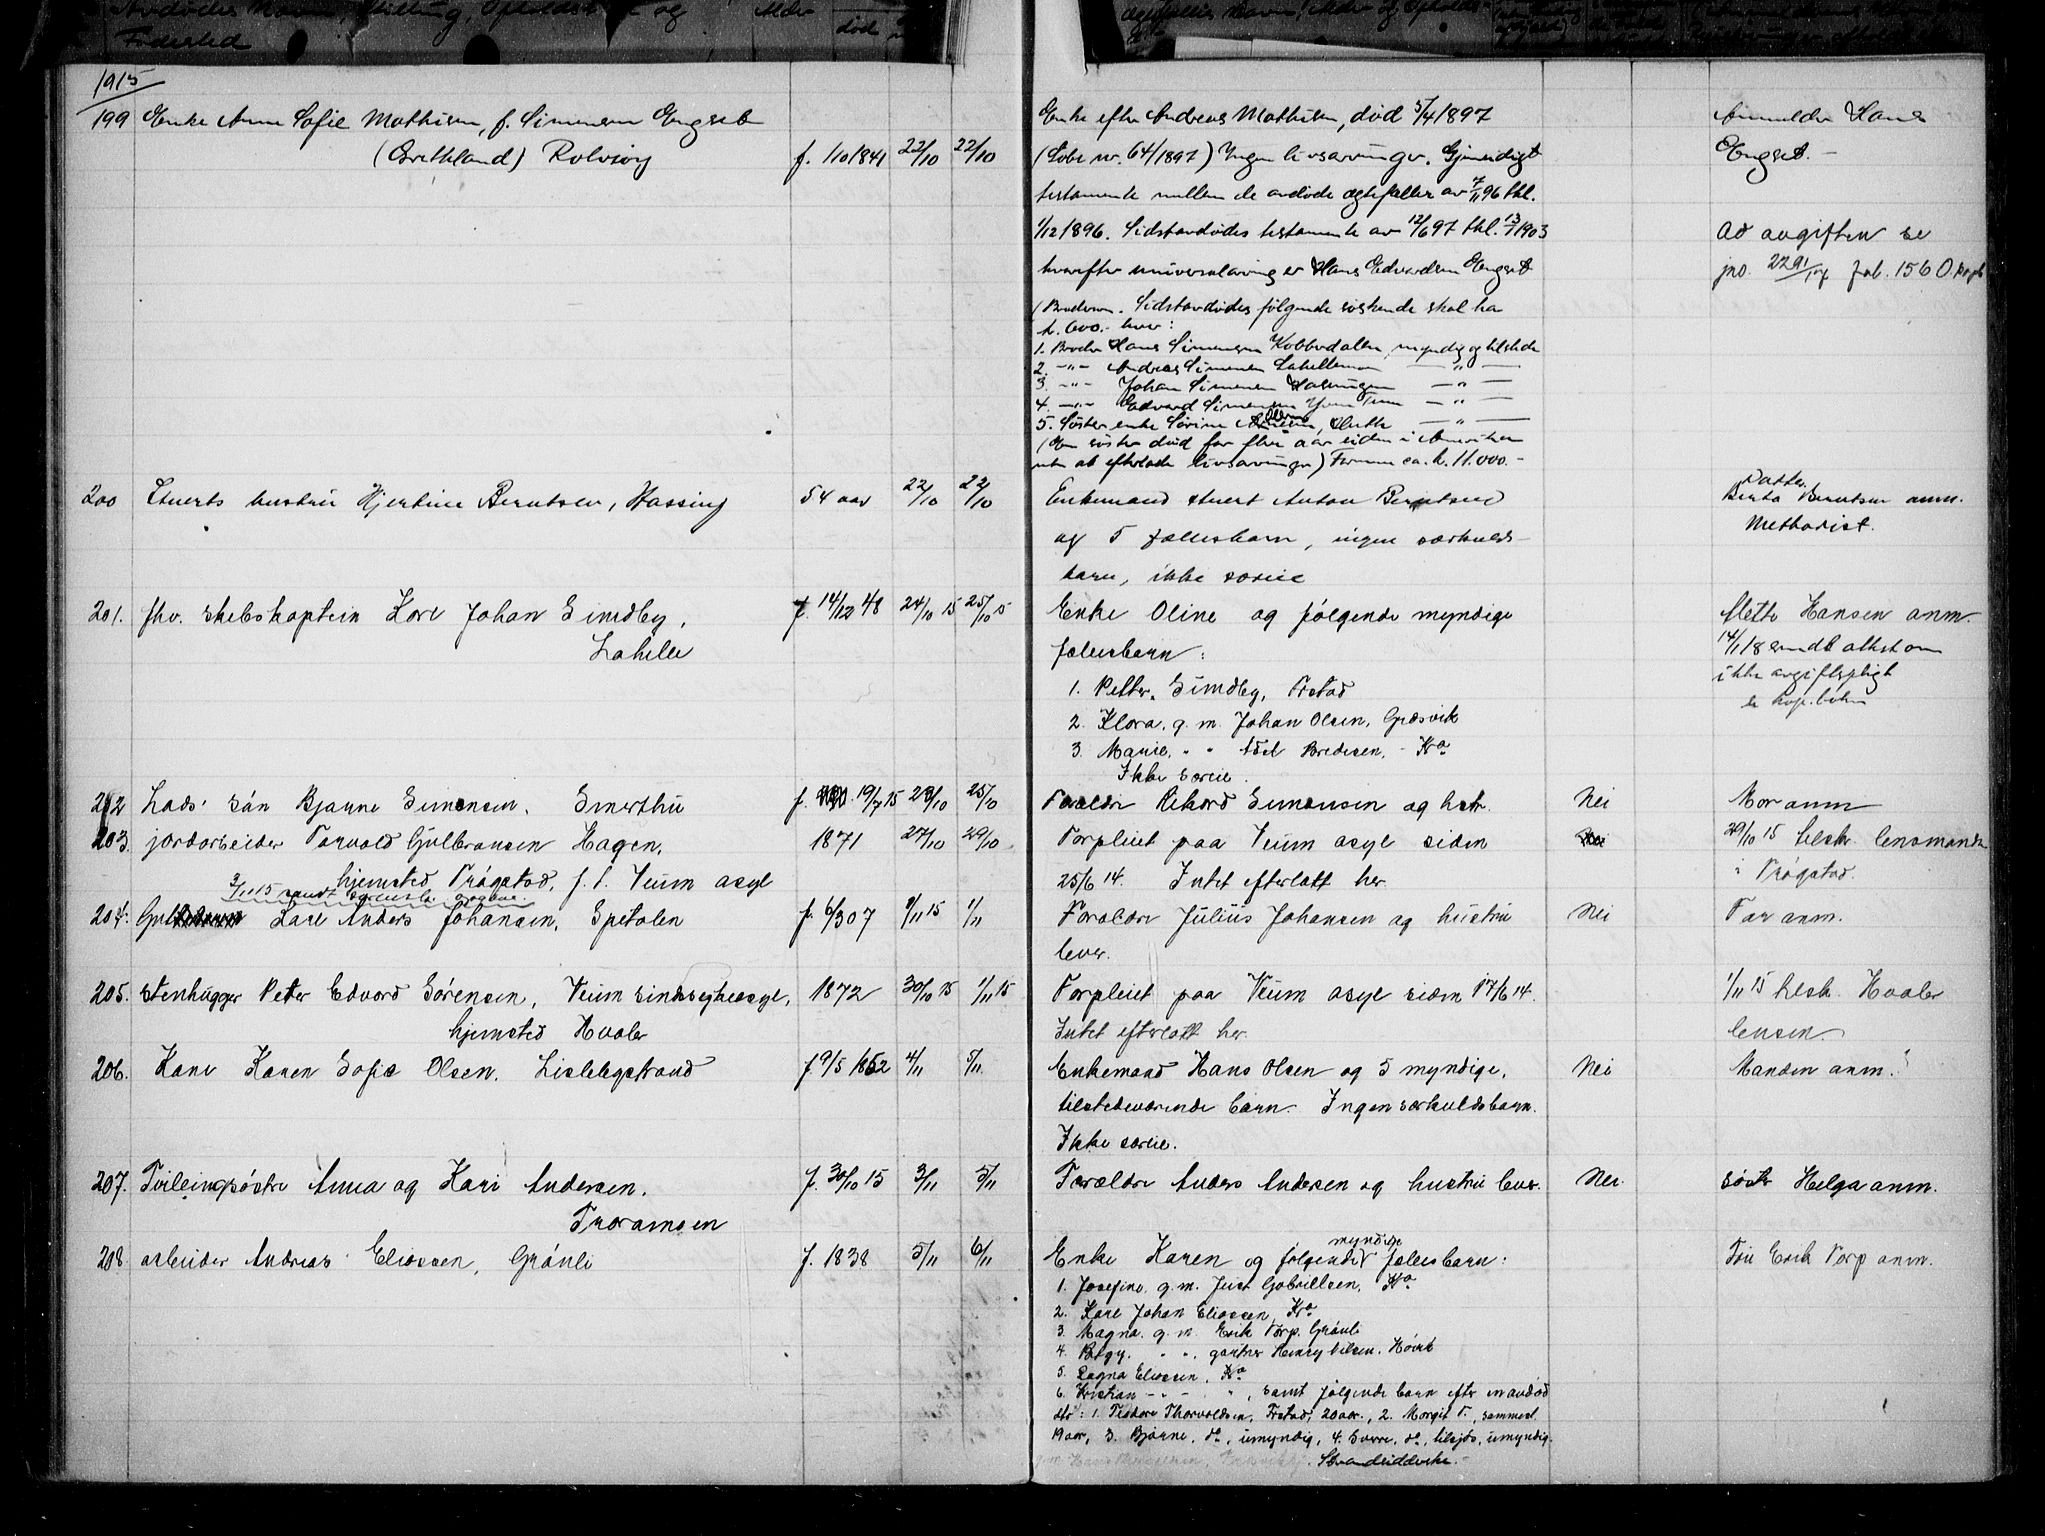 Avdødes Navn, Stilling, Opholdssted og
Fødested
Alder
død
1915
199 Enke Anne Sofie Mathisen, f. Simensen Engset
(Grethland) Rolvsøy f. 1/10 1841 22/10 22/10
Enke efter Andreas Mathisen, død 5/4 1897
(Løbe nr. 64/1897) Ingen livsarvinger. Gjensidigt
testamente mellem de avdøde ægtefæller av 7/11 96 thl.
1/12 1896. Sidstavdødes testamente av 12/6 97 thl. 13/7 1903
hvorefter universalarving er Hans Edvardsen Engset
Brodersøn. Sidstavdødes følgende søskende skal ha
k. 600.- hver:
1. Broder Hans Simensen Kobberdalen, myndig og tilstede
2. -"- Andreas Simensen Lahellemoen — " —
3. -"- Johan Simensen — " —
4. -"- Edvard Simensen — " —
5. Søster enke Sørine — " —
(En søster død for flere aar siden i Amerika
uten at efterlade livsarvinger) Formue ca. k. 11.000.-
Anmelder Hans
Engset.-
Ad avgiften se
jno. 2291/17 fol. 156
200 Stuerts hustru Hjertine Berntsen, Hassing 54 aar 22/10 22/10
Enkemand stuert Anton Berntsen
og 5 fællesbarn, ingen særkulds-
barn, ikke særeie
Datter
Berta Berntsen anm.
Methodist.
201. fhv. skibskaptein Karl Johan Simdby,
Lahelle f. 14/12 48 24/10 15 25/10 15
Enke Oline og følgende myndige
fællesbarn:
1. Petter Simdby, Frstad
2. Klara, g. m. Johan Olsen, Græsvik
3. Marie, " " Adel Bredesen, Kra
Ikke særeie.
Mette Hansen anm.
14/1 18 sendt attest om
ikke avgiftspligt
202 Lads' søn Bjarne Simensen, Smerthu f. 19/7 15 23/10 25/10
Forældre Rikard Simensen og hstr. Nei Mor anm
203. jordarbeider Torvald Gulbransen Hagen, 1871 27/10 29/10
hjemsted Trøgstad, f. t. Veum asyl
Forpleiet paa Veum asyl siden
25/6 14. Intet efterlatt her.
29/10 15 tilskr. lensmanden
i Trøgstad.
3/11 15 sendt
204. Gut Karl Anders Johansen, Spetalen f. 6/3 07 1/11 15 1/11
Forældre Julius Johansen og hustru Nei Far anm.
lever.
205. Stenhugger Peter Edvard Sørensen, Veum sindssygeasyl, 1872 30/10 15 1/11 15
hjemsted Hvaler
Forpleiet paa Veum asyl siden 17/6 14.
Intet efterlatt her.
1/11 15 tilskr. Hvaler
lensm.
206. Kone Karen Sofie Olsen, Lislebystrand f. 9/5 1852 4/11 5/11
Enkemand Hans Olsen og 5 myndige, Nei Manden anm.
tilstedeværende barn. Ingen særkuldsbarn.
Ikke særeie.
207. Tvillingsøstre Anna og Kari Andersen,
Traramoen f. 30/10 15 3/11 5/11
Forældre Anders Andersen og hustru lever. Nei. søster Helga anm.
208 arbeider Andreas Eliassen, Grønli f. 1838 5/11 6/11
Enke Karen og følgende myndige fællesbarn:
1. Josefine, g. m. Just Gabrielsen, Kra
2. Karl Johan Eliassen, Kra
3. Magna, g. m. Erik Torp, Grønli
4. Borgy, " " gartner Henry Nilsen, Høvik
5. Ragna Eliassen, Kra
6. Kristian - " - " , samt følgende barn efter en avdød
dtr: 1. Teodore Thorvaldsen, Frstad, 20 aar, 2. Margit T., sammest.
19 aar, 3. Bjarne, do, umyndig, 4. Sverre, do, tilsjøs, umyndig.
Fru Erik Torp anm.